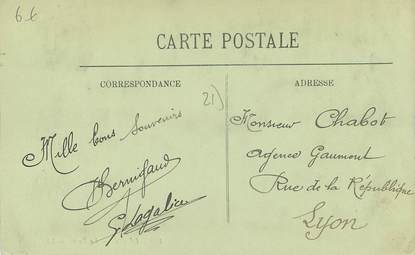 66
CARTE POSTALE
CORRESPONDANCE
Mille bons souvenirs
21)
ADRESSE
Monsieur Chabot
Agence Gaumont
Rue de la République
Lyon